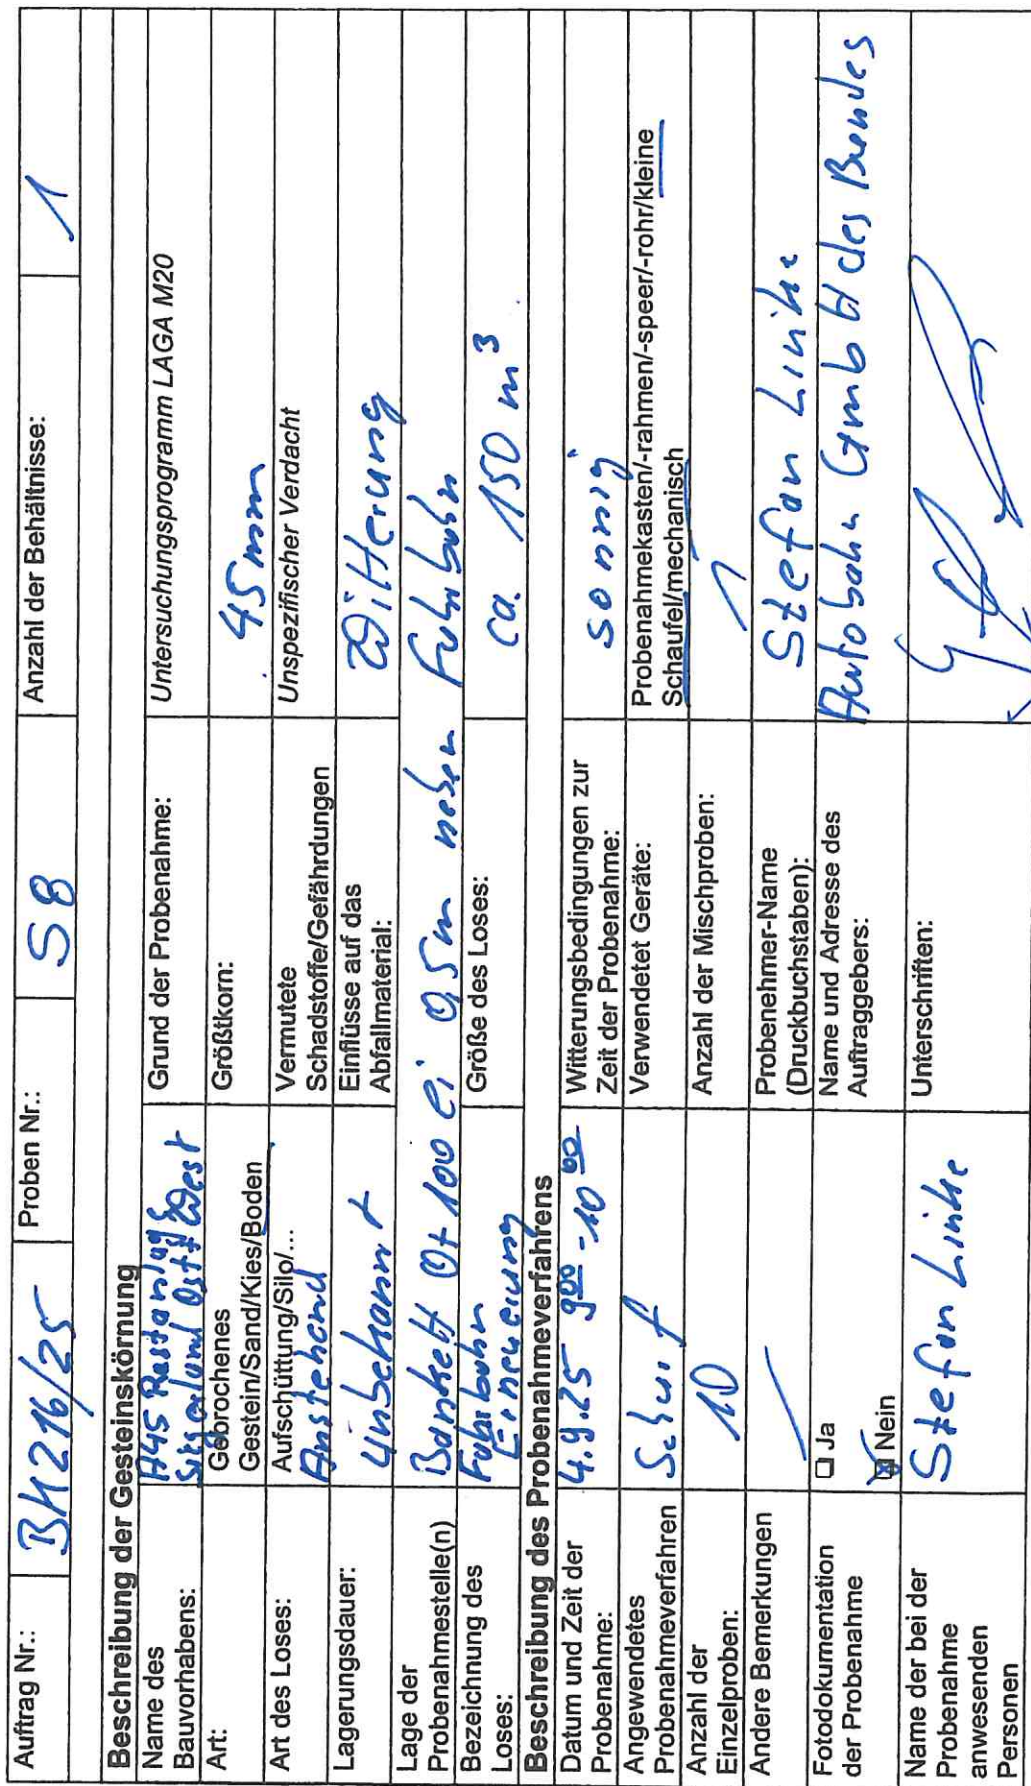 Auftrag Nr.: BH216/25 Proben Nr.: S8 Anzahl der Behältnisse: 1
Beschreibung der Gesteinskörnung
Name des Bauvorhabens: A45 Rastanlage Siegerland Ost + West Grund der Probenahme: Untersuchungsprogramm LAGA M20
Art: Gebrochenes Gestein/Sand/Kies/Boden Größtkorn: 45mm
Art des Loses: Aufschüttung/Silo/... Anstehend Vermutete Schadstoffe/Gefährdungen Unspezifischer Verdacht
Lagerungsdauer: unbekannt Einflüsse auf das Abfallmaterial: Witterung
Lage der Probenahmestelle(n) Bankett 0+100 ei 0,5m neben Fahrbahn
Bezeichnung des Loses: Fahrbahn Erneuerung Größe des Loses: ca. 150 m³
Beschreibung des Probenahmeverfahrens
Datum und Zeit der Probenahme: 4.9.25 9⁰⁰-10⁰⁰ Witterungsbedingungen zur Zeit der Probenahme: sonnig
Angewendetes Probenahmeverfahren Schurf Verwendetet Geräte: Probenahmekasten/-rahmen/-speer/-rohr/kleine Schaufel/mechanisch
Anzahl der Einzelproben: 10 Anzahl der Mischproben: 1
Andere Bemerkungen Probenehmer-Name (Druckbuchstaben): Stefan Linke
Fotodokumentation der Probenahme ☐ Ja ☒ Nein Name und Adresse des Auftraggebers: Autobahn GmbH des Bundes
Name der bei der Probenahme anwesenden Personen Stefan Linke Unterschriften: